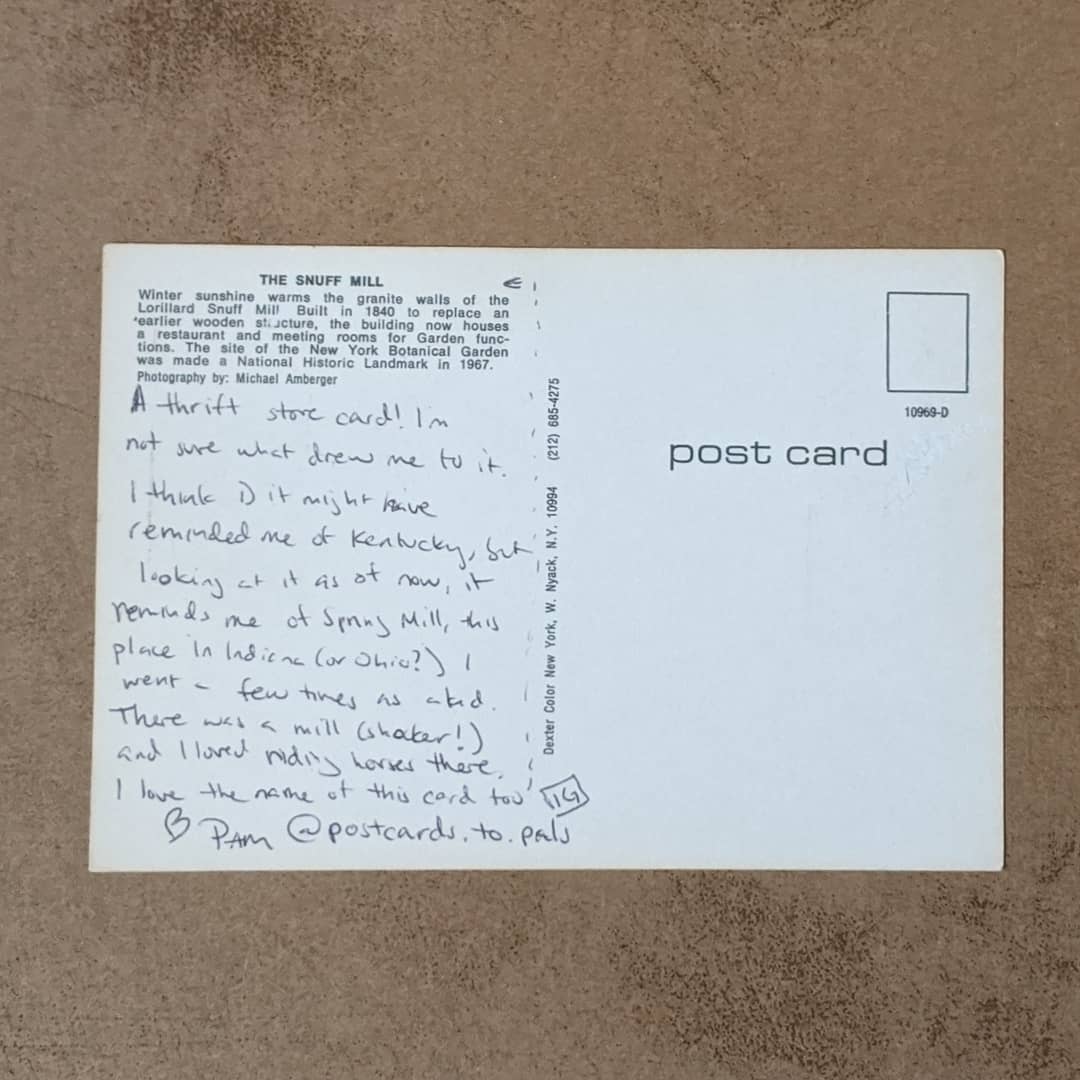 THE SNUFF MILL
Winter sunshine warms the granite walls of the
Lorillard Snuff Mill Built in 1840 to replace an
earlier wooden structure, the building now houses
a restaurant and meeting rooms for Garden func-
tions. The site of the New York Botanical Garden
was made a National Historic Landmark in 1967.
Photography by: Michael Amberger
A thrift store card! I'm
not sure what drew me to it.
I think 1) it might have
reminded me of Kentucky, but
looking at it as of now, it
reminds me of Spring Mill, this
place in Indiana (or Ohio?) I
went a few times as a kid.
There was a mill (shaker!)
and I loved riding horses there.
I love the name of this card too
♡ PAM @postcards.to.pals
IG
Dexter Color New York, W. Nyack, N.Y. 10994 (212) 685-4275
10969-D
post card